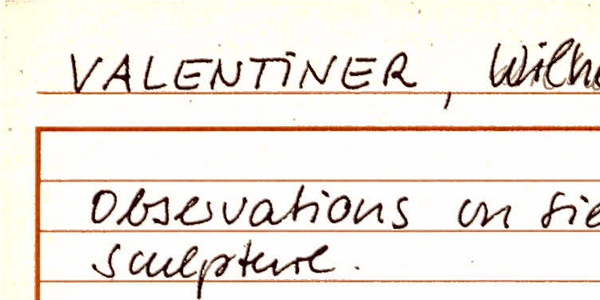 VALENTINER, Wilh
Observations on Sie
sculpture.